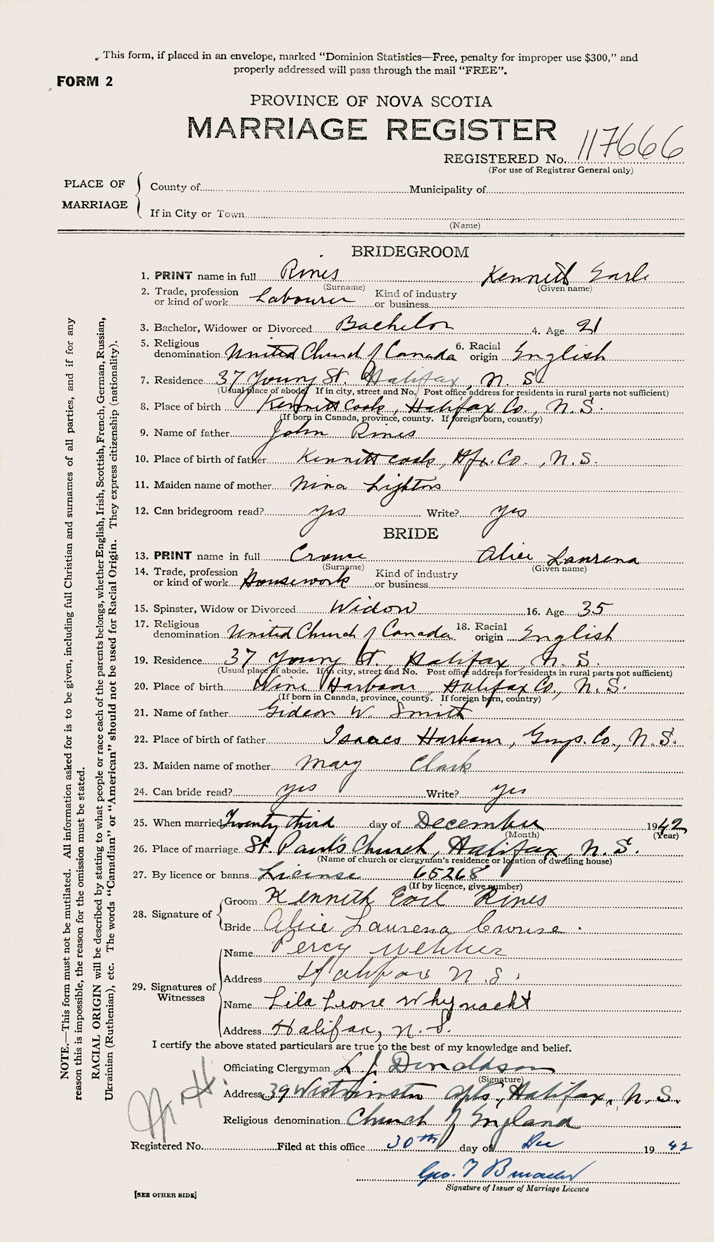 This form, if placed in an envelope, marked "Dominion Statistics—Free, penalty for improper use $300," and
properly addressed will pass through the mail "FREE".
FORM 2
PROVINCE OF NOVA SCOTIA
MARRIAGE REGISTER
REGISTERED No. 117666
(For use of Registrar General only)
PLACE OF MARRIAGE
County of Municipality of
If in City or Town
(Name)
BRIDEGROOM
1. PRINT name in full Rines Kenneth Earle
(Surname) (Given name)
2. Trade, profession or kind of work Labourer Kind of industry or business
3. Bachelor, Widower or Divorced Bachelor 4. Age 21
5. Religious denomination United Church of Canada 6. Racial origin English
7. Residence 37 Young St. Halifax, N. S.
(Usual place of abode. If in city, street and No. Post office address for residents in rural parts not sufficient)
8. Place of birth Kennettcook, Halifax Co., N. S.
(If born in Canada, province, county. If foreign born, country)
9. Name of father John Rines
10. Place of birth of father Kennettcook, Hfx. Co., N. S.
11. Maiden name of mother Nina
12. Can bridegroom read? yes Write? yes
BRIDE
13. PRINT name in full Crouse Alice Laurena
(Surname) (Given name)
14. Trade, profession or kind of work Housework Kind of industry or business
15. Spinster, Widow or Divorced Widow 16. Age 35
17. Religious denomination United Church of Canada 18. Racial origin English
19. Residence 37 Young St. Halifax, N. S.
(Usual place of abode. If in city, street and No. Post office address for residents in rural parts not sufficient)
20. Place of birth Wine Harbour, Halifax Co., N. S.
(If born in Canada, province, county. If foreign born, country)
21. Name of father Gideon W. Smith
22. Place of birth of father Isaacs Harbour, Guys. Co., N. S.
23. Maiden name of mother Mary Clark
24. Can bride read? yes Write? yes
25. When married Twenty third day of December 1942
(Month) (Year)
26. Place of marriage St. Paul's Church, Halifax, N. S.
(Name of church or clergyman's residence or location of dwelling house)
27. By licence or banns License 65268
(If by licence, give number)
28. Signature of
Groom Kenneth Earl Rines
Bride Alice Laurena Crouse.
29. Signatures of Witnesses
Name Percy Webber
Address Halifax N. S.
Name Lila Leone Whynacht
Address Halifax, N. S.
I certify the above stated particulars are true to the best of my knowledge and belief.
Officiating Clergyman L. J. Donaldson
(Signature)
Address 39 Westminster Apts, Halifax, N. S.
Religious denomination Church of England
Registered No. Filed at this office 30th day of Dec 1942
Geo. T
Signature of Issuer of Marriage Licence
[SEE OTHER SIDE]
NOTE.—This form must not be mutilated. All information asked for is to be given, including full Christian and surnames of all parties, and if for any
reason this is impossible, the reason for the omission must be stated.
RACIAL ORIGIN will be described by stating to what people or race each of the parents belongs, whether English, Irish, Scottish, French, German, Russian,
Ukrainian (Ruthenian), etc. The words "Canadian" or "American" should not be used for Racial Origin. They express citizenship (nationality).